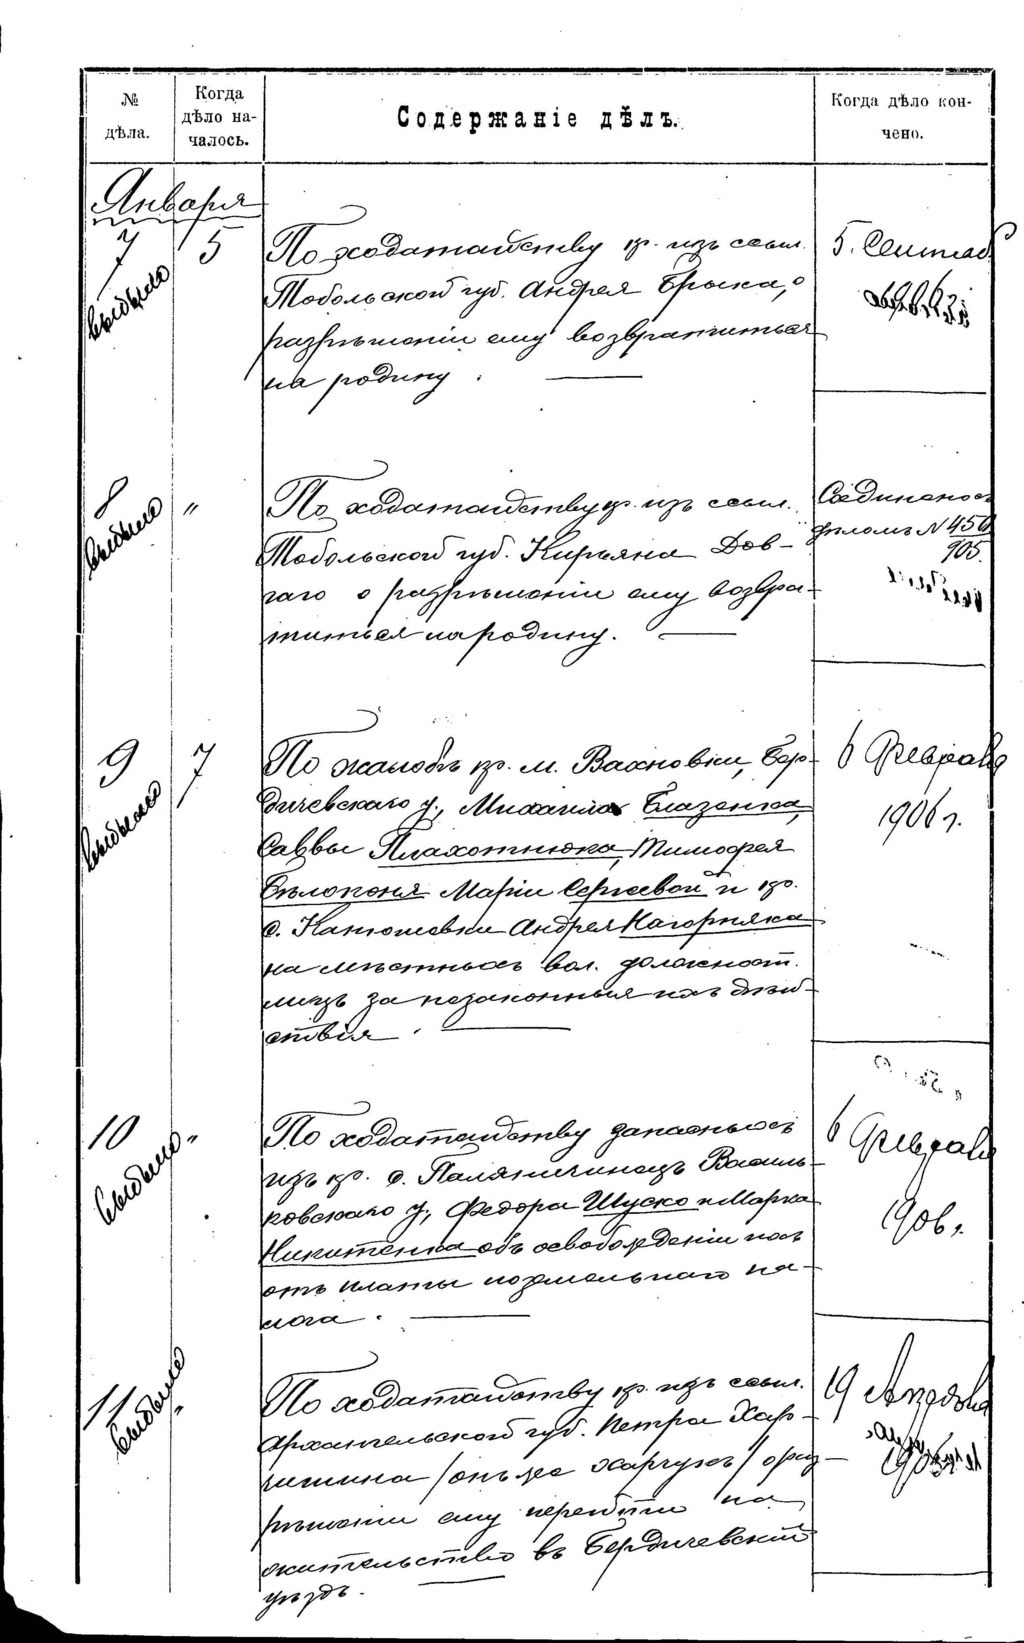 № дѣла.
Когда дѣло началось.
Содержаніе дѣлъ.
Когда дѣло кончено.
Января
7
выбыло
5
По ходатайству кр. изъ ссыл.
Тобольской губ. Андрея Брыка, о
разрѣшеніи ему возвратиться
на родину.
5. Сентяб
8
выбыло
"
По ходатайству кр. изъ ссыл.
Тобольской губ. Кирьяна Дов-
гаго о разрѣшеніи ему возвра-
титься на родину.
Соединено съ
дѣломъ № 450
905.
9
выбыло
7
По жалобѣ кр. м. Вахновки, Бер-
дичевскаго у., Михаила Блазенка,
Саввы Плахотнюка, Тимофея
Бѣлоконя Маріи Сергѣевой и кр.
с. Конюшевки Андрея Нагорняка
на мѣстныхъ вол. должност.
лицъ за незаконныя ихъ дѣй-
ствія.
6 Февраля
1906 г.
10
выбыло
"
По ходатайству запасныхъ
изъ кр. с. Паляничинецъ Василь-
ковскаго у., Федора Шуско и Марка
Никитенка объ освобожденіи ихъ
отъ платы поземельнаго на-
лога.
6 Февраля
1906 г.
11
выбыло
"
По ходатайству кр. изъ ссыл.
Архангельской губ. Петра Хар-
чишина /онъ же Харчукъ/ о раз-
рѣшеніи ему перейти на
жительство въ Бердичевскій
уѣздъ.
19